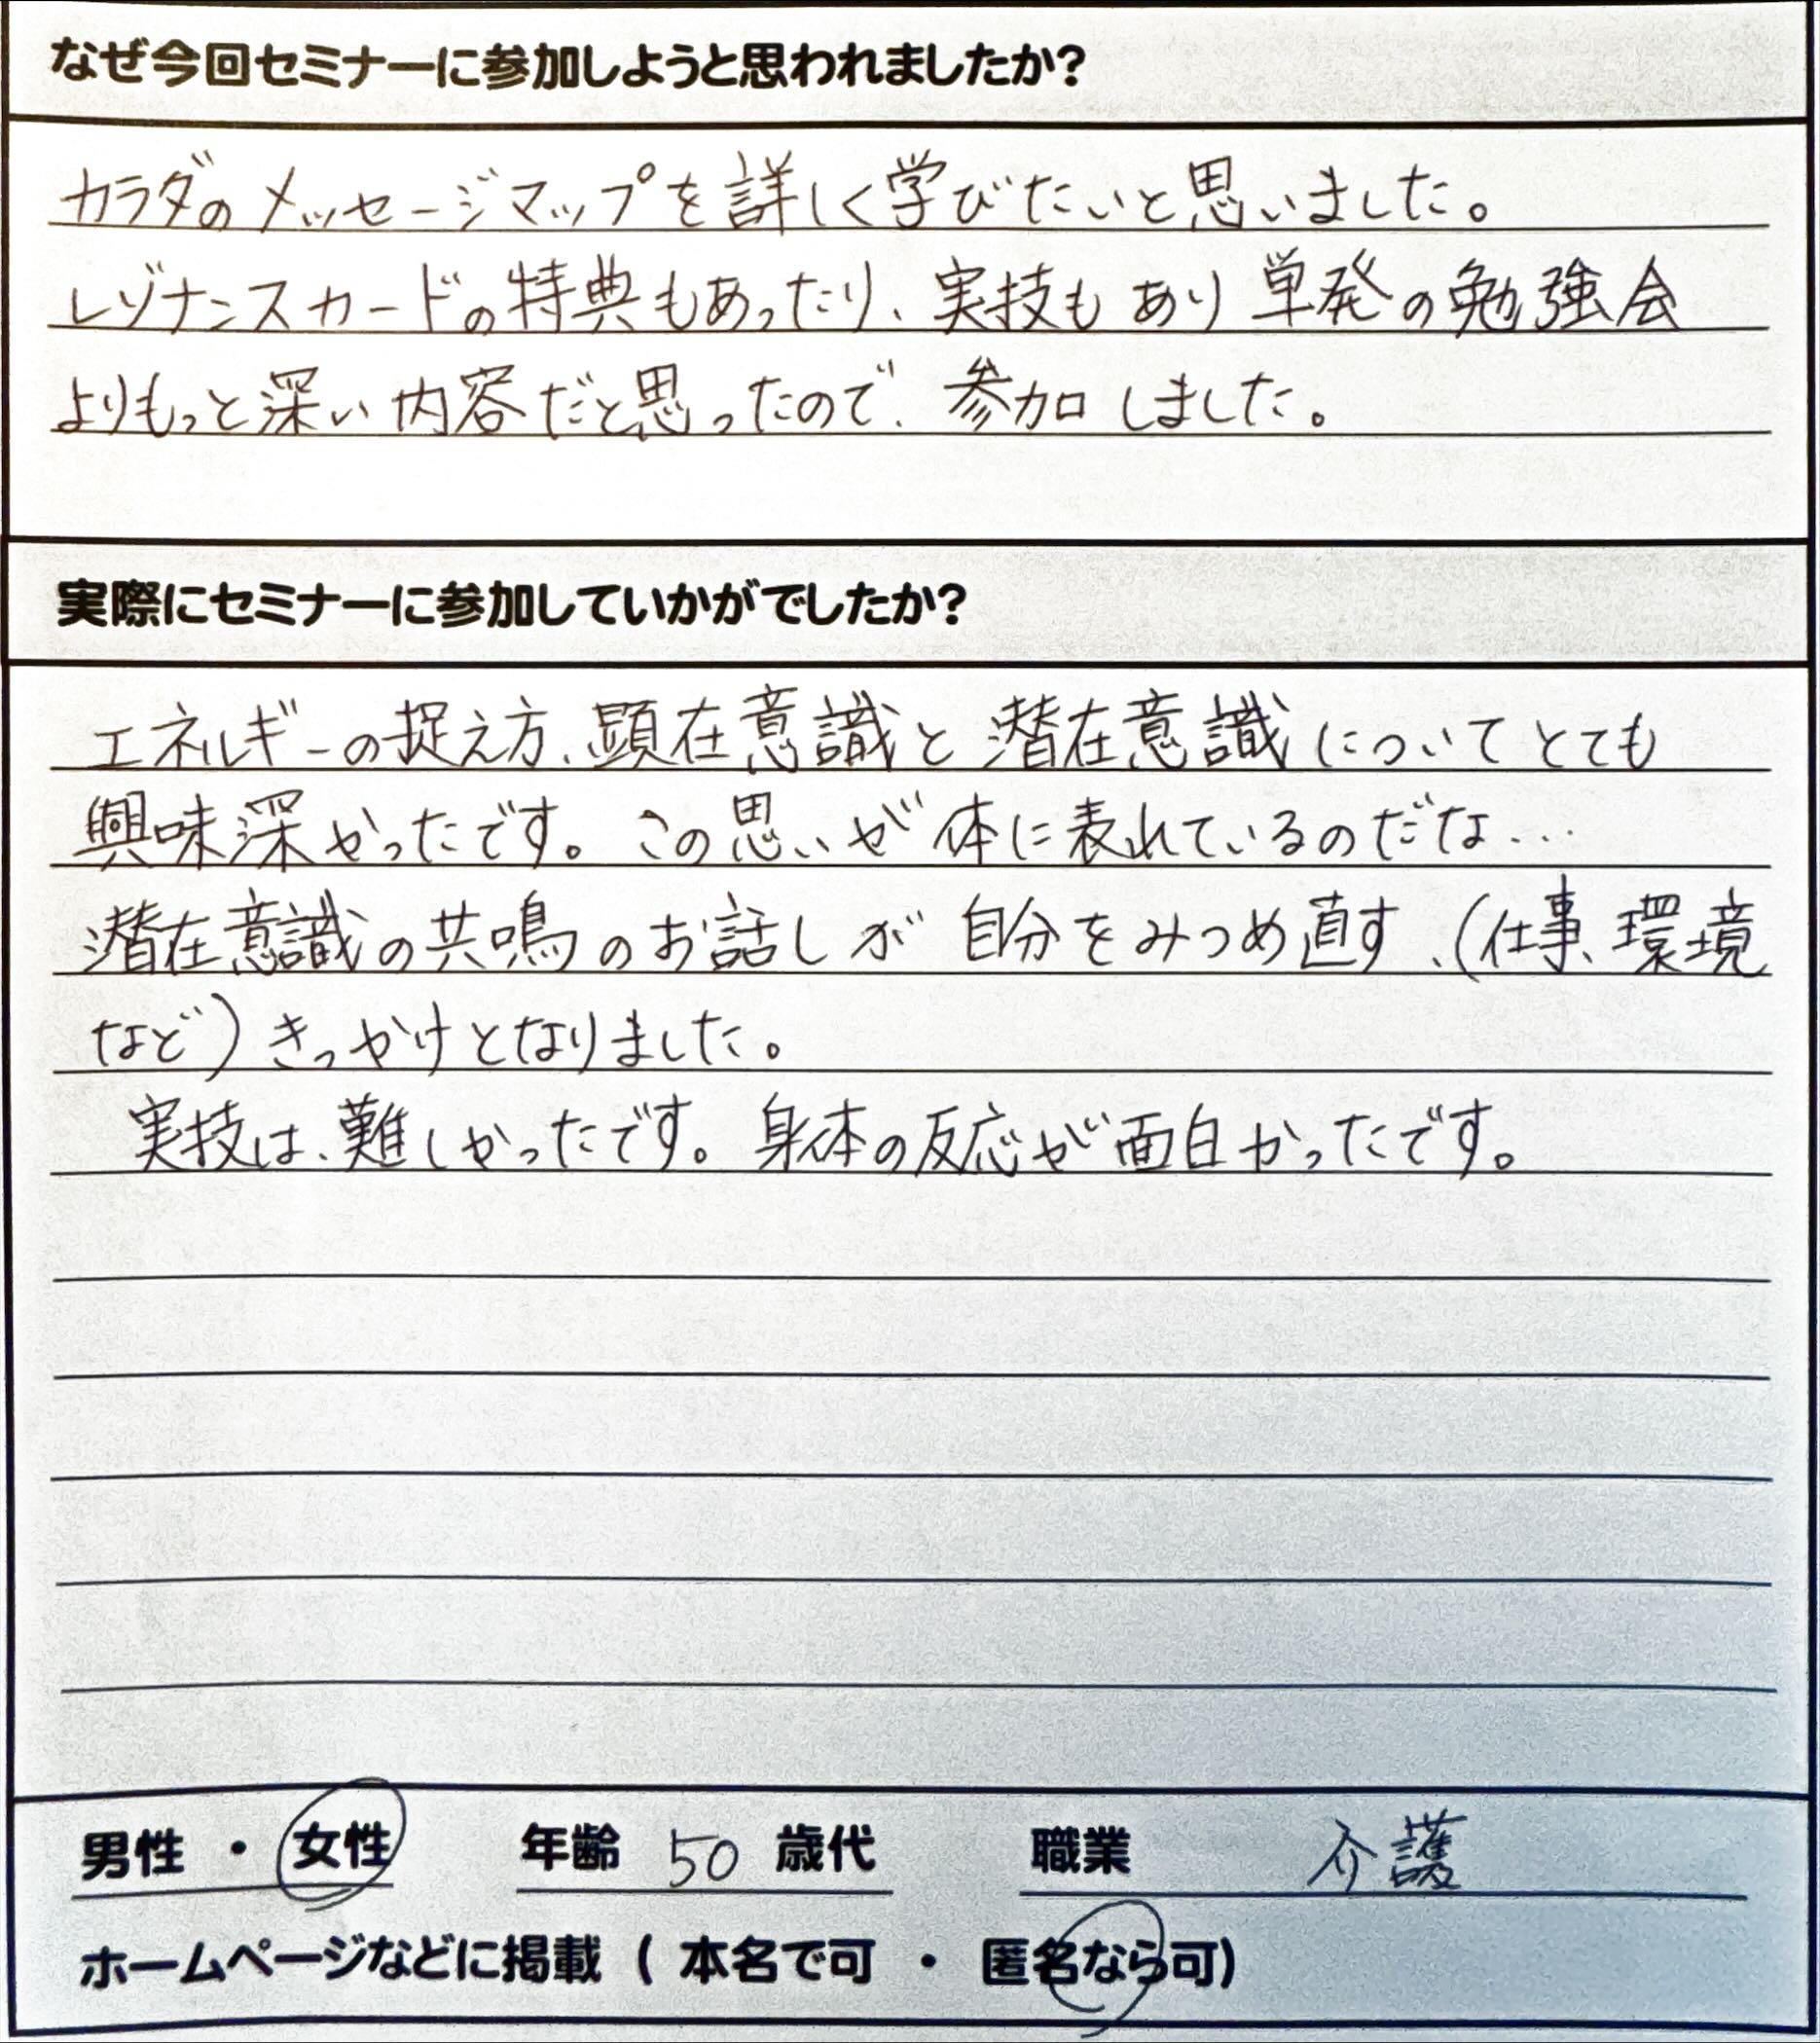 なぜ今回セミナーに参加しようと思われましたか?
カラダのメッセージマップを詳しく学びたいと思いました。
レゾナンスカードの特典もあったり、実技もあり単発の勉強会
よりもっと深い内容だと思ったので、参加しました。
実際にセミナーに参加していかがでしたか?
エネルギーの捉え方、顕在意識と潜在意識についてとても
興味深かったです。この思いが体に表れているのだな…
潜在意識の共鳴のお話しが自分をみつめ直す、(仕事、環境
など)きっかけとなりました。
実技は、難しかったです。身体の反応が面白かったです。
男性 ・ 女性 年齢 50 歳代 職業 介護
ホームページなどに掲載 ( 本名で可 ・ 匿名なら可)